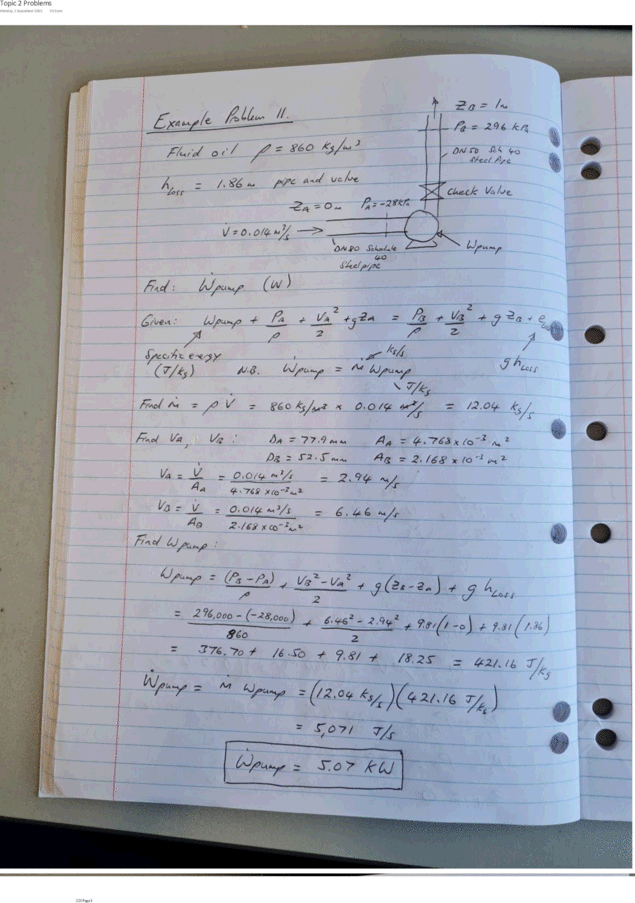 Topic 2 Problems
Example Problem 11.
Fluid oil ρ = 860 kg/m³
h Loss = 1.86 m pipe and valve
Z_B = 1m
P_B = 296 kPa
DN50 Sch 40
Steel Pipe
check Valve
Z_A = 0m P_A = -28kPa
V̇ = 0.014 m³/s
Wpump
DN80 Schedule
40
Steel pipe
Find: Ẇpump (W)
Given: Wpump + P_A/ρ + V_A²/2 + gZ_A = P_B/ρ + V_B²/2 + gZ_B + e
Specific energy
(J/kg)
N.B. Ẇpump = ṁ Wpump
kg/s
J/kg
g h Loss
Find ṁ = ρ V̇ = 860 kg/m³ × 0.014 m³/s = 12.04 kg/s
Find V_A, V_B : D_A = 77.9 mm A_A = 4.768×10⁻³ m²
D_B = 52.5 mm A_B = 2.168×10⁻³ m²
V_A = V̇/A_A = 0.014 m³/s / 4.768×10⁻³ m² = 2.94 m/s
V_B = V̇/A_B = 0.014 m³/s / 2.168×10⁻³ m² = 6.46 m/s
Find Wpump:
Wpump = (P_B - P_A)/ρ + V_B² - V_A²/2 + g(Z_B - Z_A) + g h Loss
= 296,000 - (-28,000)/860 + 6.46² - 2.94²/2 + 9.81(1-0) + 9.81(1.86)
= 376.70 + 16.50 + 9.81 + 18.25 = 421.16 J/kg
Ẇpump = ṁ Wpump = (12.04 kg/s)(421.16 J/kg)
= 5,071 J/s
Ẇpump = 5.07 KW